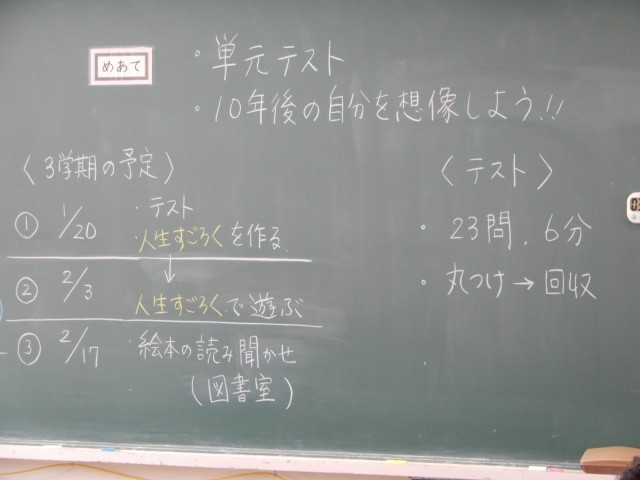 めあて
・単元テスト
・10年後の自分を想像しよう!!
〈3学期の予定〉
① 1/20 ・テスト
・人生すごろくを作る。
↓
② 2/3 人生すごろくで遊ぶ
③ 2/17 ・絵本の読み聞かせ
(図書室)
〈テスト〉
・23問、6分
・丸つけ→回収